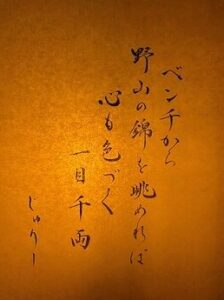 ベンチから
野山の錦を眺めれば
心も色づく
一目千両
じゅりー